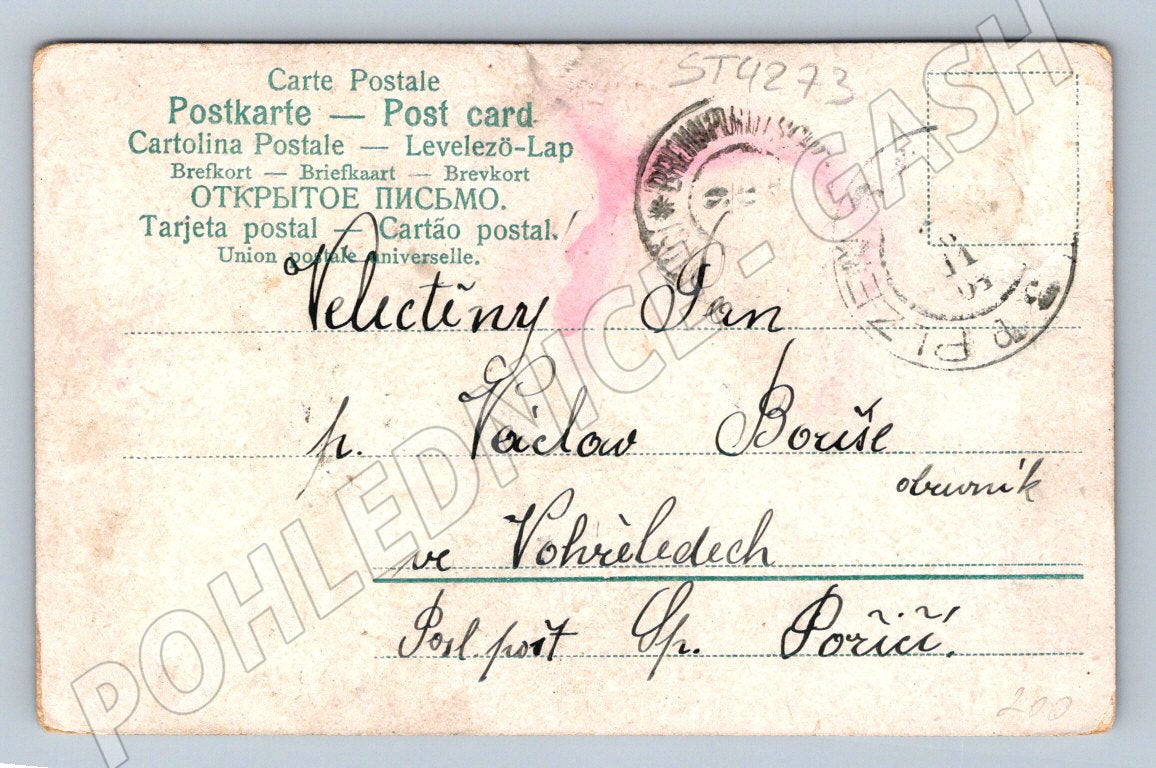 Carte Postale
Postkarte — Post card
Cartolina Postale — Levelezö-Lap
Brefkort — Briefkaart — Brevkort
ОТКРЫТОЕ ПИСЬМО.
Tarjeta postal — Cartão postal.
Union postale universelle.
ST4273
PLZEŇ
Velectěný Pan
p. Václav Bouše
obuvník
ve Vohřeledech
Posl. pošt Sp. Poříčí.
200
POHLEDNICE - GASH